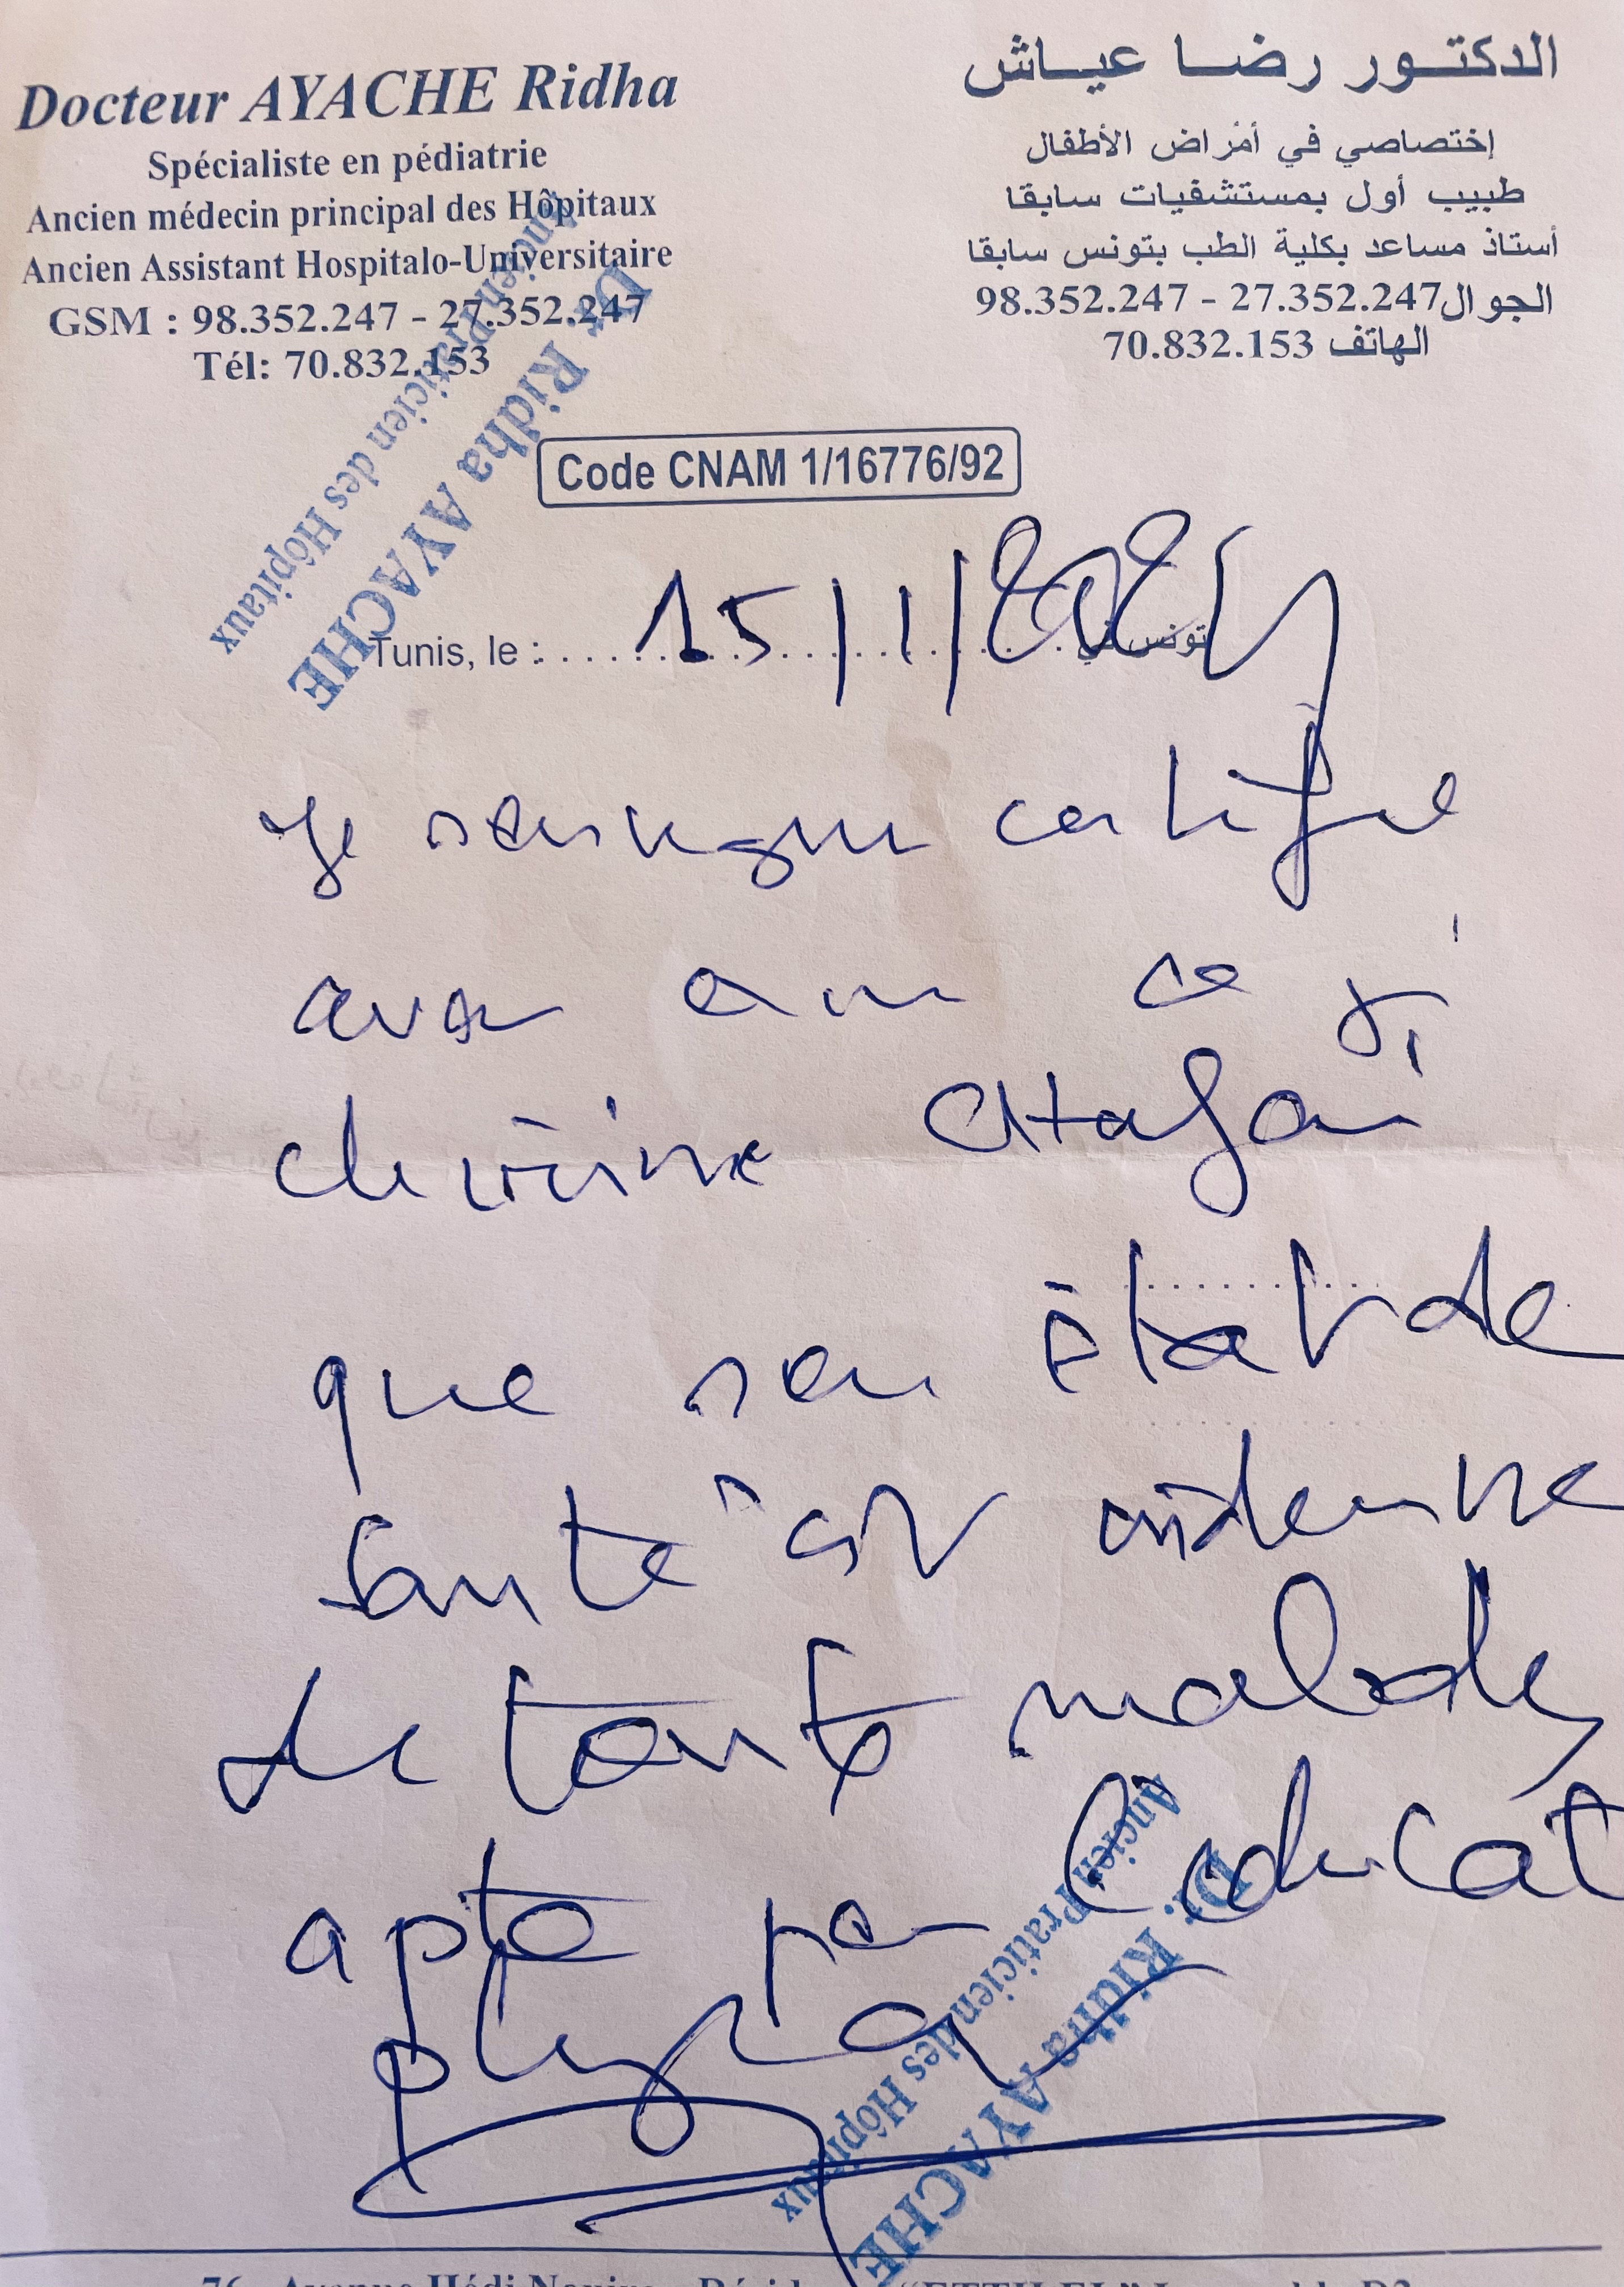 Docteur AYACHE Ridha
Spécialiste en pédiatrie
Ancien médecin principal des Hôpitaux
Ancien Assistant Hospitalo-Universitaire
GSM : 98.352.247 - 27.352.247
Tél: 70.832.153
الدكتور رضا عياش
إختصاصي في أمراض الأطفال
طبيب أول بمستشفيات سابقا
أستاذ مساعد بكلية الطب بتونس سابقا
الجوال 27.352.247 - 98.352.247
الهاتف 70.832.153
Dr. Ridha AYACHE
Ancien Praticien des Hôpitaux
Code CNAM 1/16776/92
Tunis, le : 15/1/ تونس في
Je soussigné certifie
avoir ce
que son état de
santé est indemne
de toute
apte
Dr. Ridha AYACHE
Ancien Praticien des Hôpitaux